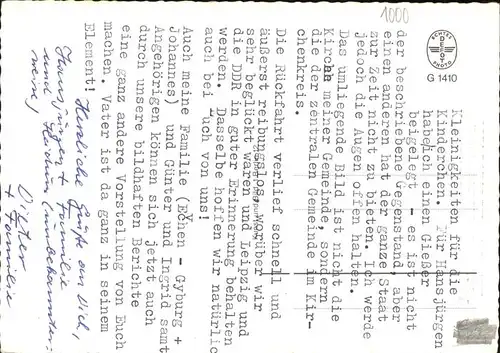 1000
ECHTES
PHOTO
G 1410
Kleinigkeiten für die
Kinderchen. Für Hansjürgen
habe ich einen Gießer
beigelegt - es ist nicht
der beschriebene Gegenstand, aber
einen anderen hat der ganze Staat
zur Zeit nicht zu bieten. Ich werde
jedoch die Augen offen halten.
Das umliegende Bild ist nicht die
Kirche meiner Gemeinde, sondern
die der zentralen Gemeinde im Kir-
chenkreis.
Die Rückfahrt verlief schnell und
äußerst reibungslos, worüber wir
sehr beglückt waren und Leipzig und
die DDR in guter Erinnerung behalten
werden. Dasselbe hoffen wir natürlich
auch bei Euch von uns!
Auch meine Familie (Eyhen - Gyburg +
Johannes) und Günter und Ingrid samt
Angehörigen können sich jetzt auch
durch unsere bildhaften Berichte
eine ganz andere Vorstellung von Euch
machen. Vater ist da ganz in seinem
Element!
Herzliche Grüße an Dich,
Hansjürgen + Familie
und
(unbekannter-
weise)
Dieter
+ Familie